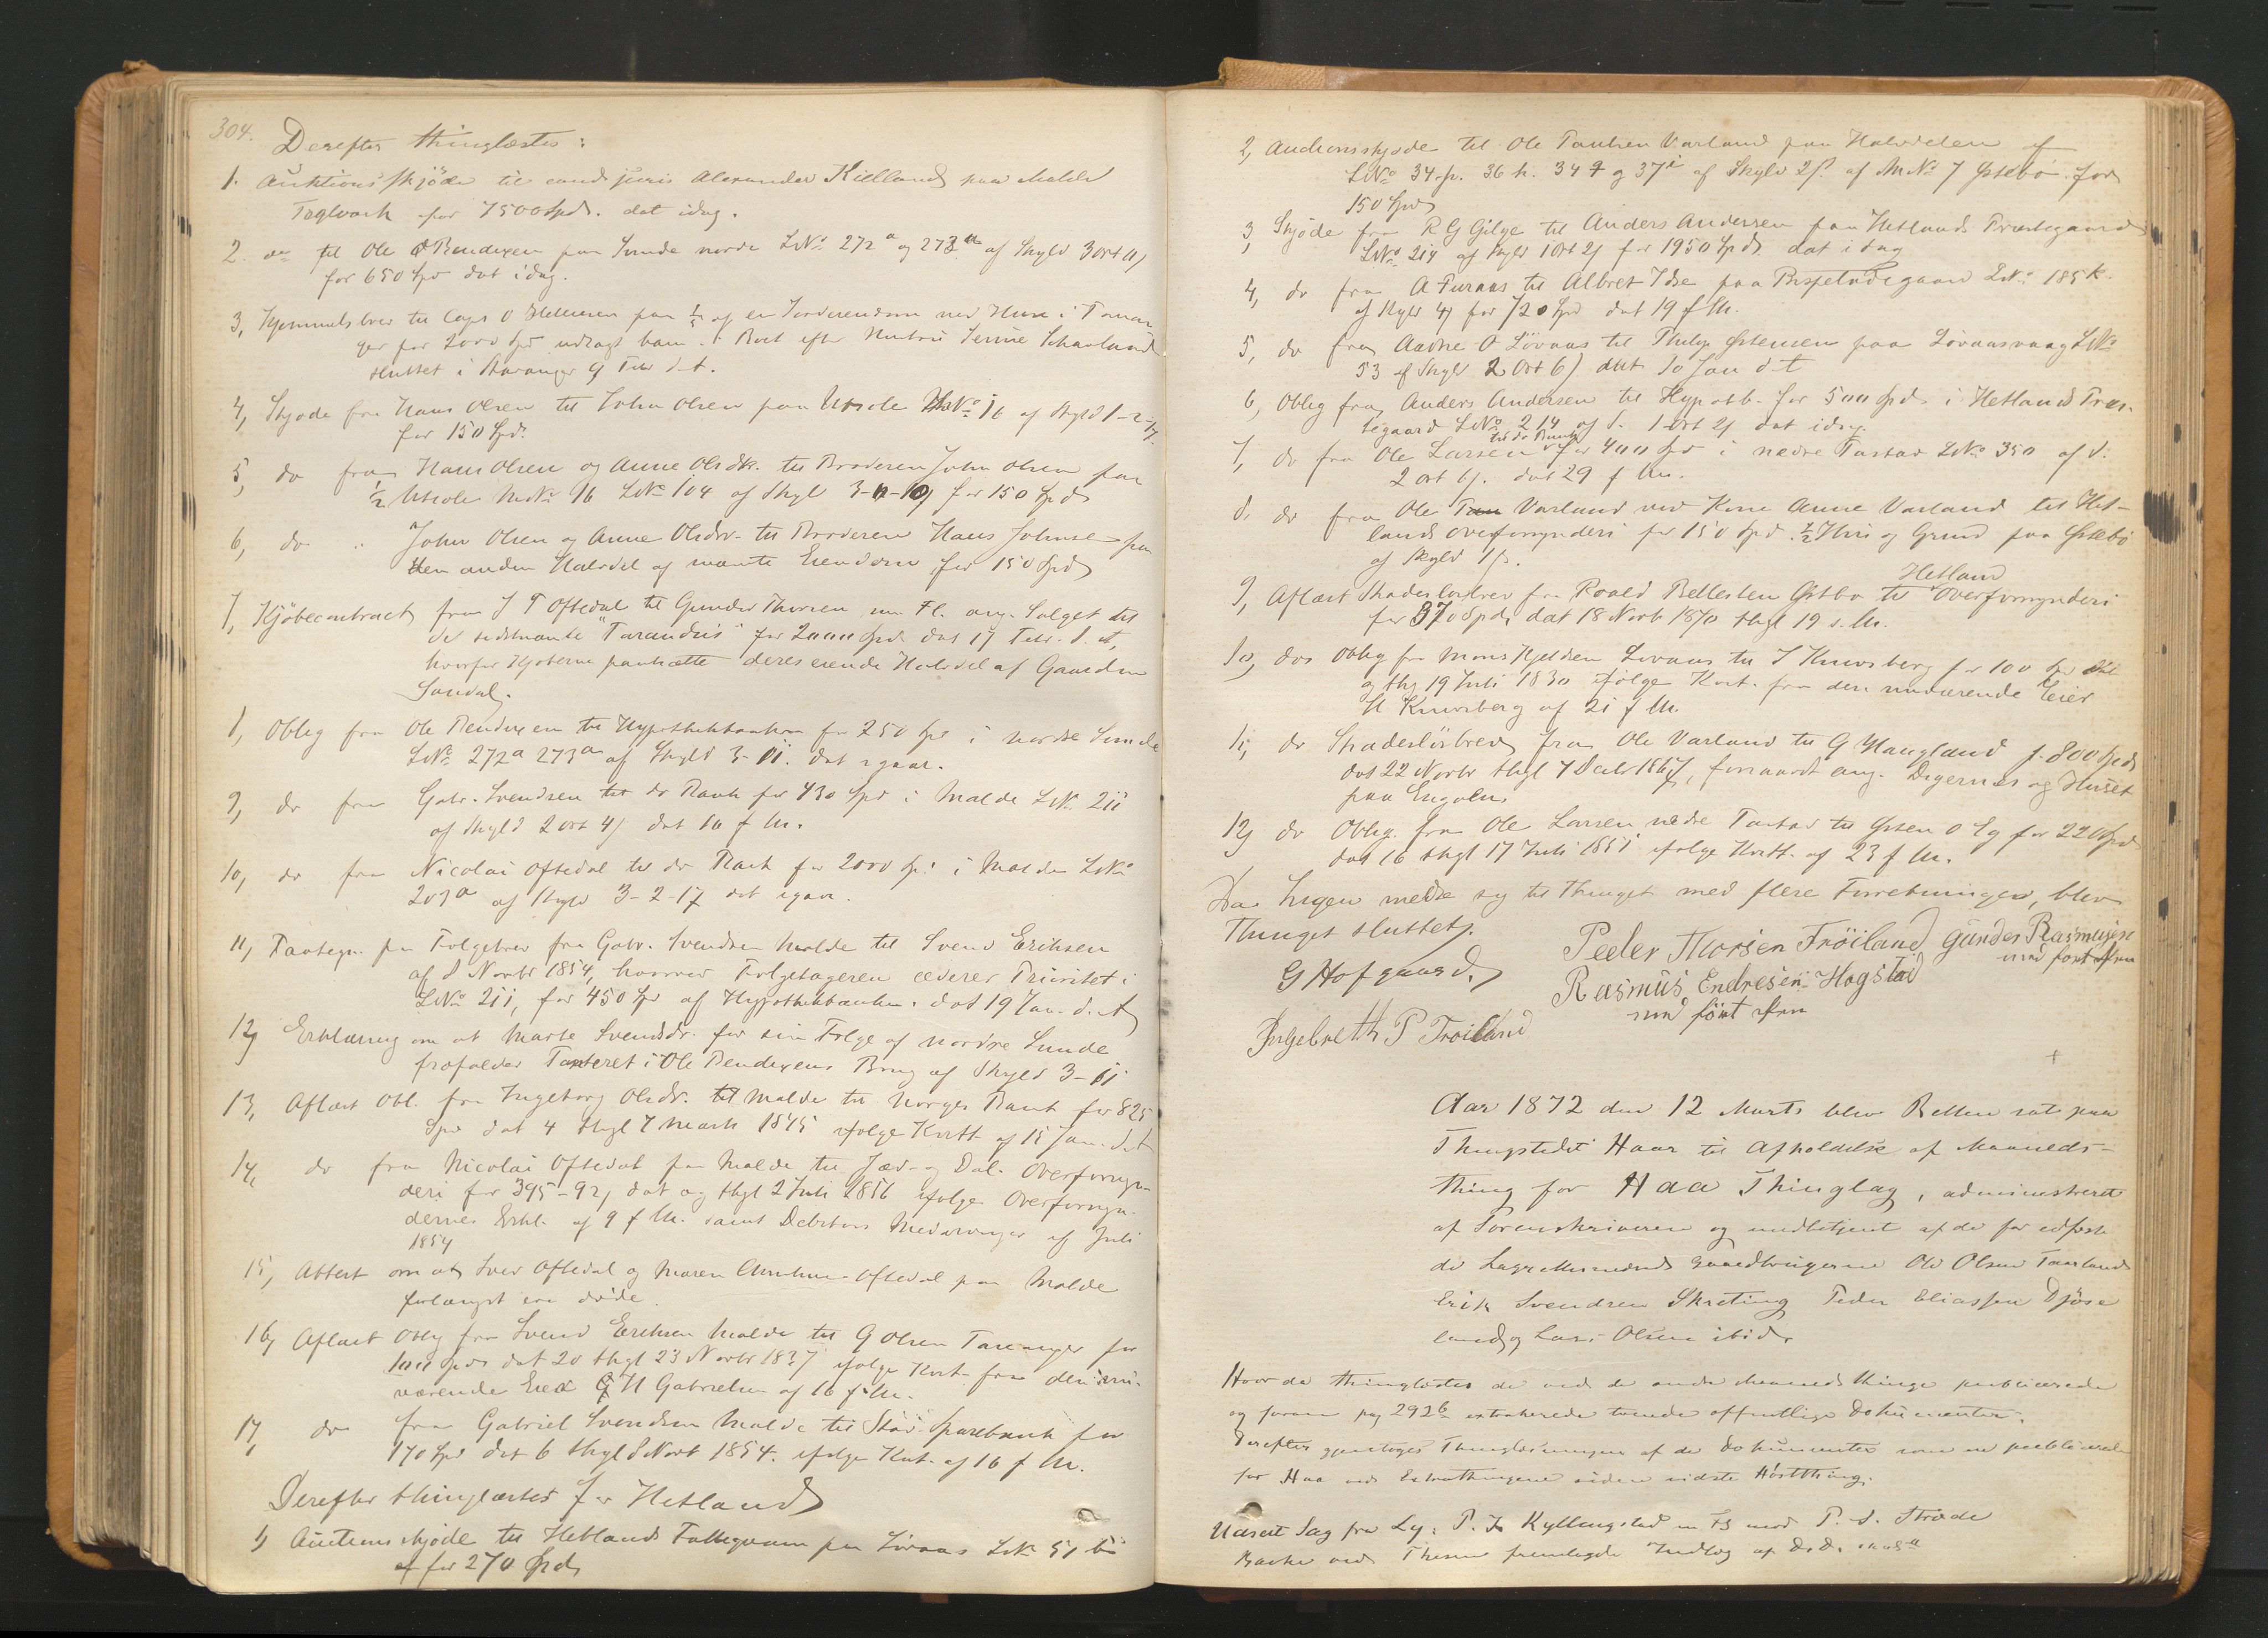 304.
Derefter thinglæstes:
1. Auktionsskjöde til cand juris Alexander Kielland paa Malde
Teglværk for 7500 Spd. dat idag.
2. do til Ole Bendixen paa Sunde nordre LNo 272a og 273a af Skyld 3 ort 11
for 650 Spd dat idag.
3, Hjemmelsbrev til Capt O paa af en Jordeiendom med Huse i
for 2000 Spd udlagt ham i Boet efter Serine Schanland
sluttet i Stavanger 9 Febr d. A.
4, Skjøde fra Hans Olsen til John Olsen paa Utsole MNo 16 af Skyld 1-2-
for 150 Spd.
5, do fra Hans Olsen og Anne Olsdtr. til Broderen John Olsen paa
1/2 Utsole MNo 16 LNo 104 af Skyld for 150 Spd
6, do " John Olsen og Anne Olsdtr. til Broderen Hans Johnsen paa
den anden Halvdel af nævnte Eiendom for 150 Spd
7, Kjöbecontract fra J T Oftedal til Gunder Thorsen m. Fl. ang. Salget til
de sidstnævnte "Tarandus" for 2000 Spd. dat 17 Febr. d. A.,
hvorfor Kjøberne pantsætte deres eiende Halvdel af Gaarden
Sandal.
8, Oblig fra Ole Bendixen til Hypothekbanken for 250 Spd i nordre Sunde
LNo 272a 273a af Skyld 3-11. dat igaar.
9, do fra Gabr. Svendsen til do Bank for 430 Spd i Malde LNo 211
af Skyld 2 ort 4 dat 10 f M.
10, do fra Nicolai Oftedal til do Bank for 2000 Sp: i Malde LNo
209a af Skyld 3-2-17 dat igaar.
11, Paategn. paa Folgebrev fra Gabr. Svendsen Malde til Svend Eriksen
af 8 Novbr 1854, hvorved Folgetageren cederer Prioritet i
LNo 211, for 450 Spd af Hypothekbanken. dat 19 Jan. d. A
12, Erklæring om at Marte Svendsdr. for sin Folge af nordre Sunde
frafalder Panteret i Ole Bendixens Brug af Skyld 3-11
13, Aflæst Obl. fra Ingeborg Olsdr. Malde til Norges Bank for 825
Spd dat 4 thgl 7 Marts 1845 ifølge Kvitt. af 15 Jan. d. A
14, do fra Nicolai Oftedal paa Malde til Jæd. og Dal. Overformyn-
deri for 395-92, dat og thgl 2 Juli 1856 ifølge Overformyn-
dernes Erkl. af 9 f M. samt Debitors af Juli
1854
15, Attest om at Oftedal og Maren Oftedal paa Malde
forlængst ere döde.
16, Aflæst Oblig fra Svend Eriksen Malde til G Olsen for
100 Spd dat 20 thgl 23 Novbr 1837 ifølge Kvit. fra den nu-
værende Eier G H Gabrielsen af 16 f. M.
17, do fra Gabriel Svendsen Malde til Stav. Sparebank for
170 Spd dat 6 thgl 8 Novb 1854. ifølge Kvit. af 16 f M.
Derefter thinglæstes for Hetland
1, Auctionsskjöde til Hetlands Fattigvæsen paa Lövaas LNo 51
for 270 Spd
2, Auctionsskjøde til Ole Paulsen Varland paa Halvdelen af
LNo 34 36 h. 34 og 37i af Skyld af MNo 7 Østebö for
150 Spd
3, Skjöde fra R G Gilje til Anders Andersen paa Hetlands Præstegaard
LNo 214 af Skyld 1 Ort 2 for 1950 Spd. dat idag
4, do fra A Furaas til Albret Idse paa LNo 185k.
af Skyld 4 for 720 Spd dat 19 f M.
5, do fra Aadne O Lövaas til Philip Østensen paa Lövaasvaag LNo
53 af Skyld 2 Ort 6 dat 10 Jan d. A
6, Oblig fra Anders Andersen til Hypothb. for 500 Spd. i Hetland Præs-
tegaard LNo 214 af S. 1 Ort 2 dat idag.
7, do fra Ole Larsen til do Bank for 400 Spd i nedre Tastad LNo 350 af S.
2 ort 6. dat 29 f M.
8. do fra Ole Varland med Kone Anne Varland til Het-
lands Overformynderi for 150 Spd. 1/2 Hus og Grund paa Østebö
af Skyld
9, Aflæst Skadeslosbrev fra Roald Østbo til Hetland Overformynderi
for 370 Spd, dat 18 Novb 1870 thgl 19 s. M.
10, do Oblig fra Mons Kjeldsen Lovaas til J Knivsberg for 100 Spd dat
og thgl 19 Juli 1830 ifølge Kvit. fra den nuværende Eier
H Knivsberg af 21 f M.
11, do Skadeslösbrev fra Ole Varland til G Haugland f. 800 Spd
dat 22 Novbr thgl 7 Decbr 1867, forsaavidt ang. Degernes og Huset
paa Engolen
12, do Oblig. fra Ole Larsen nedre Tastad til Østen O Eg for 220 Spd
dat 16 thgl 17 Juli 1851 ifølge Kvitt. af 23 f M.
Da Ingen meldte sig til Thinget med flere Forretninger, blev
Thinget sluttet.
G Hofgaard. Peder Thorsen Fröiland Gunder Rasmusen
med paaholden Pen
Rasmus Endresen Hogstad
med fört Pen
Ingebreth P Fröiland
Aar 1872 den 12 Marts blev Retten sat paa
Thingstedet Haar til Afholdelse af Maaneds-
thing for Haa Thinglag, administreret
af Sorenskriveren og medbetjent af de for edfæste-
de Laugrettesmænd Gaardbrugerne Ole Olsen Taarland
Erik Svendsen Skreting Peder Eliassen Djöse
land og Lars Olsen ibid.
Hvor da thinglæstes de ved de andre Maanedsthinge publicerede
og foran pag 292b extraherede tvende offentlige Dokumenter.
Derefter gjentoges Thinglæsningen af de Dokumenter som ere publicerede
for Haa ved Extrathingene siden sidste Höstthing.
Uæsket Sag fra Ly: P. Kyllingstad m Fl mod P. S. Ströde